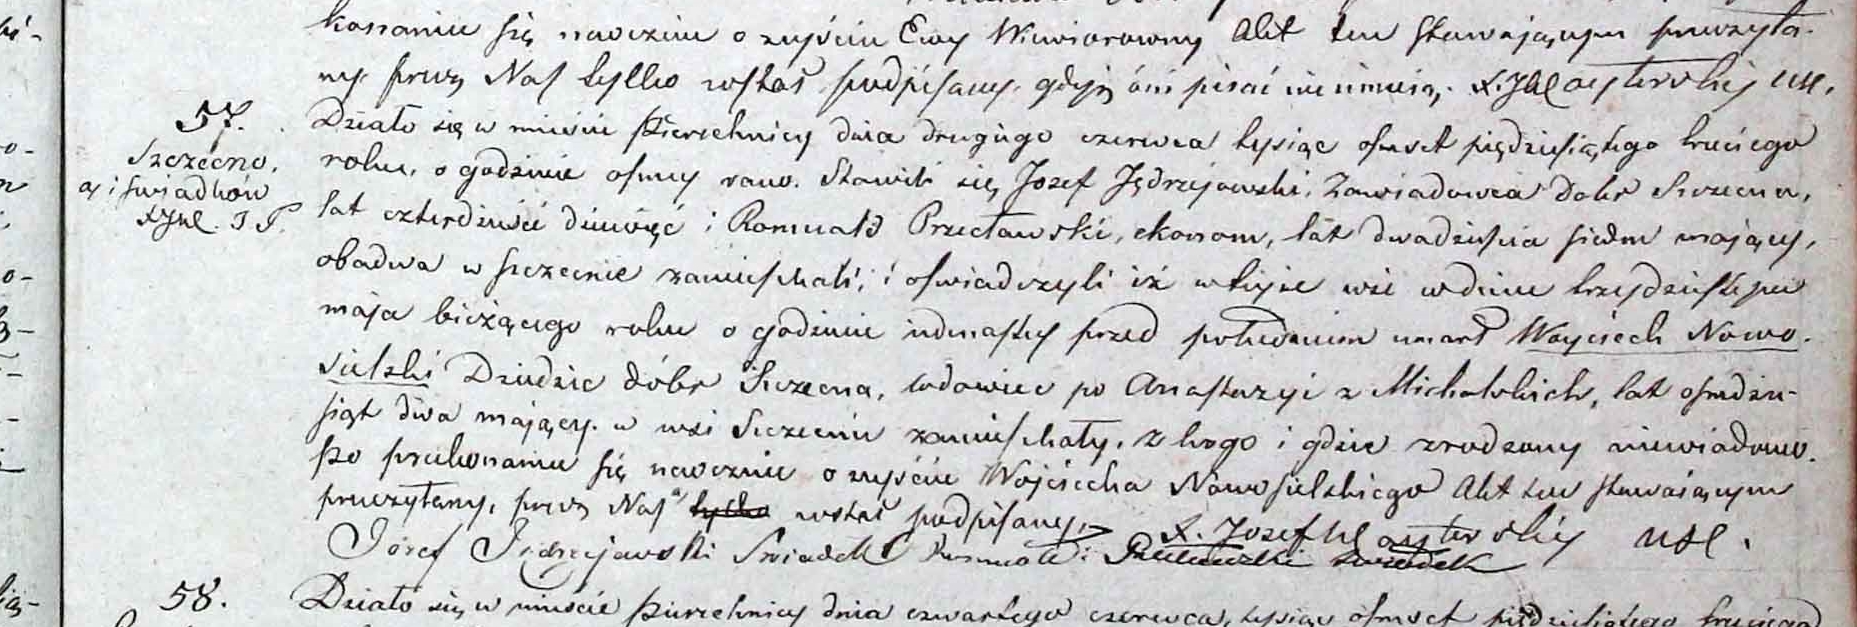 konaniu się naocznie o zejściu Ewy Wiewiorowny Akt ten stawającym przeczyta-
ny. przez Nas tylko został podpisany. gdyż oni pisać nie umieją.
57.
Szczecno.
a, i świadków
Działo się w mieście Pierzchnicy dnia drugiego czerwca tysiąc ośmset pięćdziesiątego trzeciego
roku, o godzinie osmey rano. Stawili się, Jozef Jędrzejowski, Zawiadowca Dobr Szczecna,
lat czterdzieści dziewięć i Romuald Przecławski, ekonom, lat dwadzieścia siedm mający,
obadwa w Szczecnie zamieszkali, i oświadczyli iż w tejże wsi w dniu trzydziestym
maja bieżącego roku o godzinie jedenastey przed południem umarł Woyciech Nowo-
sielski Dziedzic dóbr Szczecna, wdowiec po Anastazyi z Michalskich, lat ośmdzie-
siąt dwa mający. w wsi Szczecnie zamieszkały, z kogo i gdzie zrodzony niewiadomo.
Po przekonaniu się naocznie o zejściu Wojciecha Nowosielskiego Akt ten stawającym
przeczytany, przez Nas tylko został podpisany. X. Jozef
Józef Jędrzejowski Świadek Romuald Przecławski świadek
58. Działo się w mieście Pierzchnicy dnia czwartego czerwca, tysiąc ośmset pięćdziesiątego trzeciego